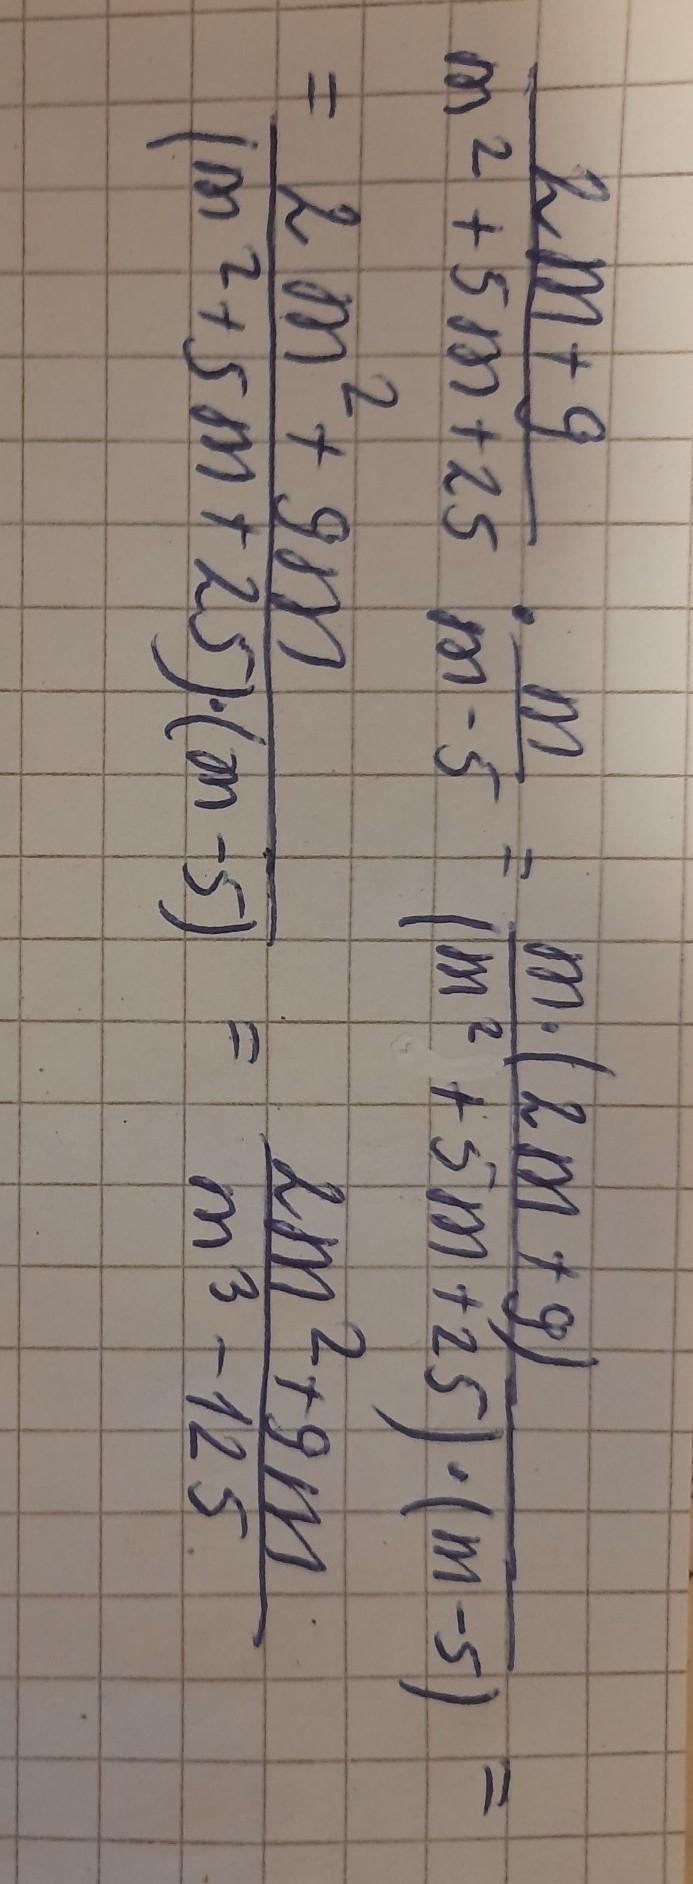 \frac{2m+9}{m^2+5m+25} \cdot \frac{m}{m-5} = \frac{m \cdot (2m+9)}{(m^2+5m+25) \cdot (m-5)} =
= \frac{2m^2+9m}{(m^2+5m+25) \cdot (m-5)} = \frac{2m^2+9m}{m^3-125}